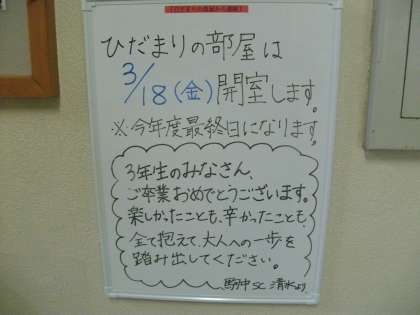 ひだまりの部屋は
3/18(金)開室します。
※今年度最終日になります。
3年生のみなさん、
ご卒業おめでとうございます。
楽しかったことも、辛かったことも、
全て抱えて、大人への一歩を
踏み出してください。
駒中SC 清水より